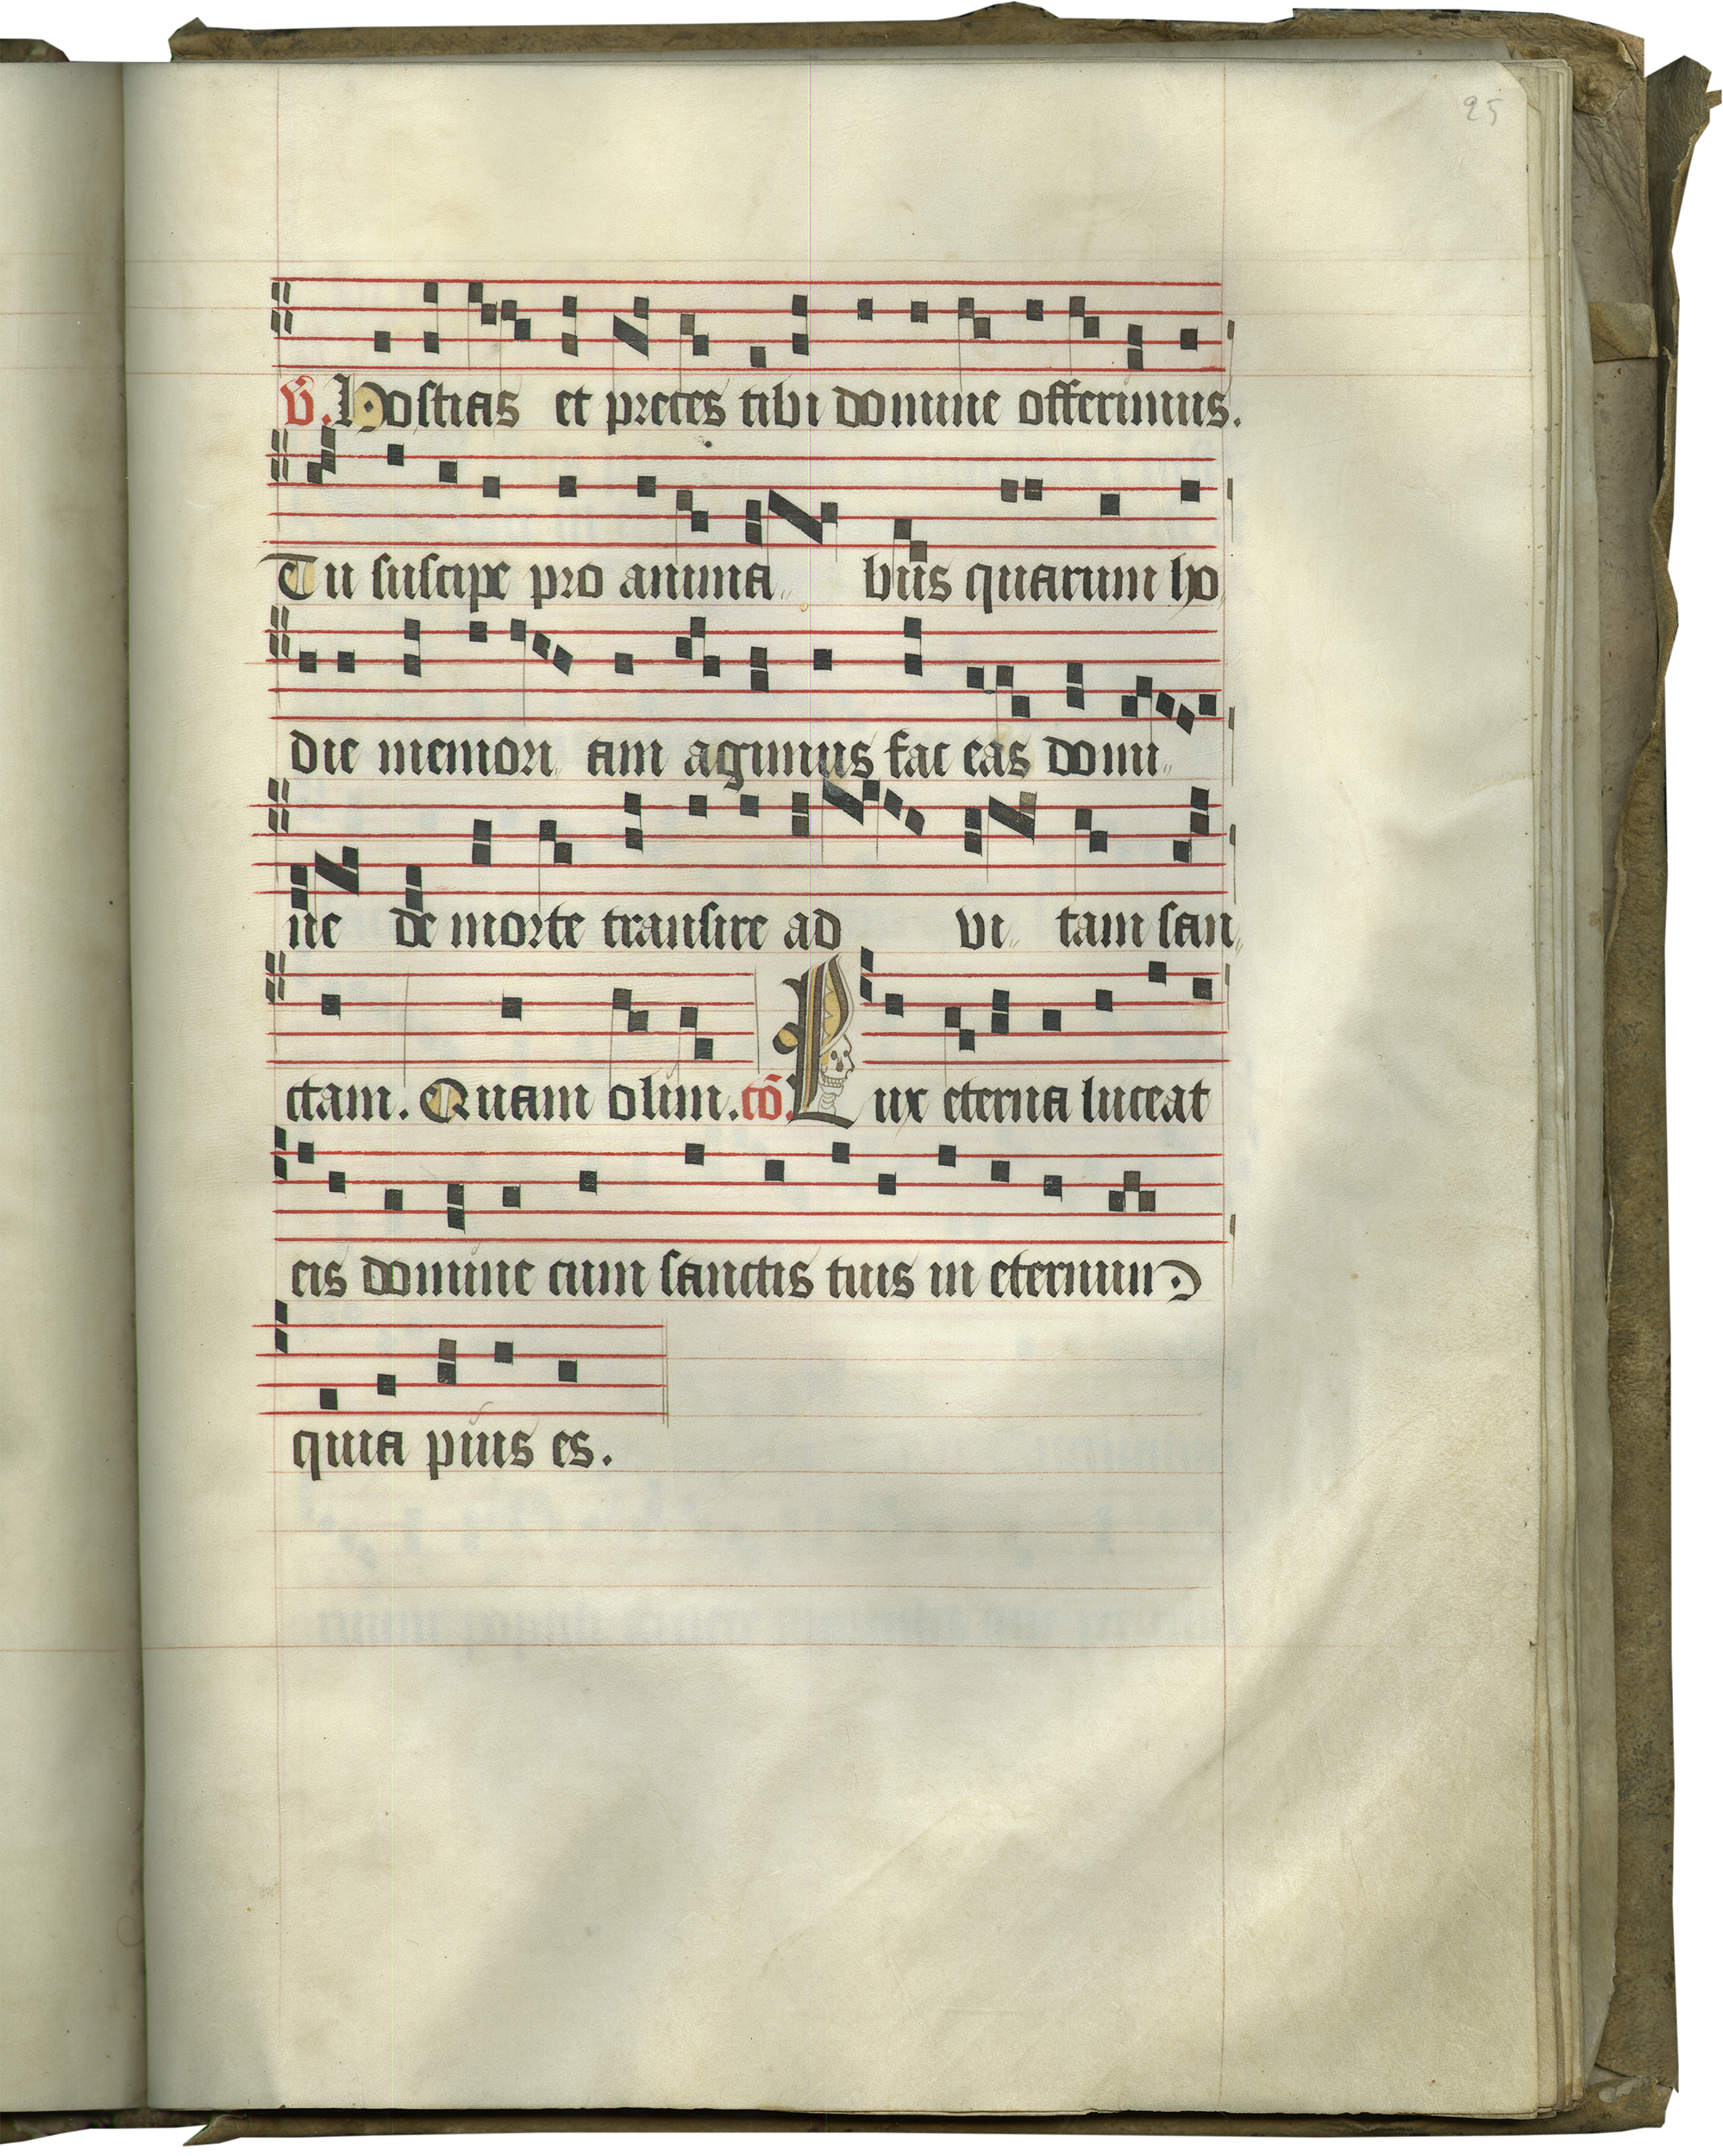 25
V. Hostias et preces tibi domine offerimus.
Tu suscipe pro anima bus quarum ho
die memori am agimus fac eas domi
ne de morte transire ad vi tam san
ctam. Quam olim. cō. Lux eterna luceat
eis domine cum sanctis tuis in eternum
quia pius es.